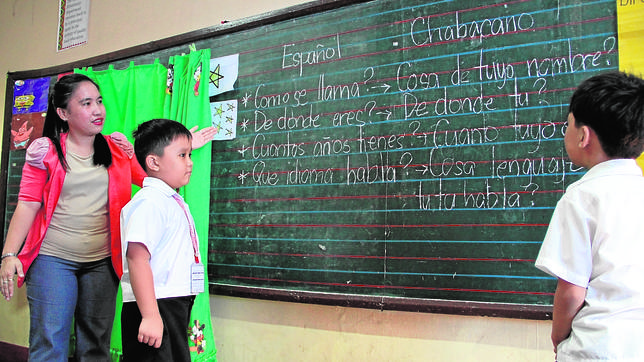 Español Chabacano
* Como se llama? → Cosa de tuyo nombre?
* De dónde eres? → De donde tu?
* Cuantos años tienes? → Cuanto tuyo
* Que idioma hablla? → Cosa lenguaje
tu ta habla?